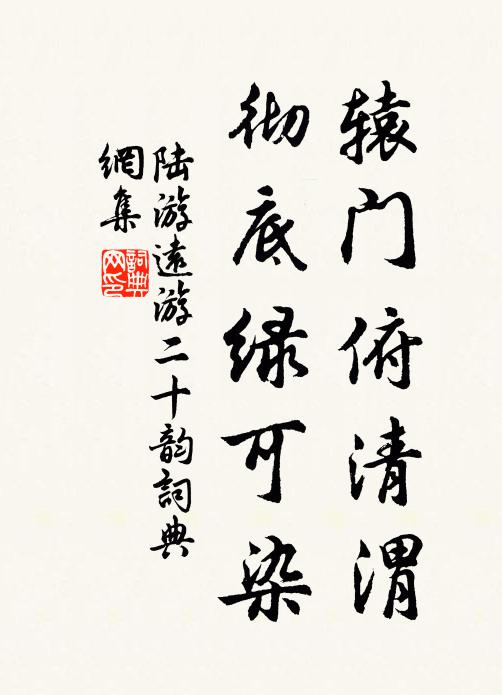 辕门俯清渭
彻底绿可染
陆游遠游二十韵詞典
網集
詞典
网印